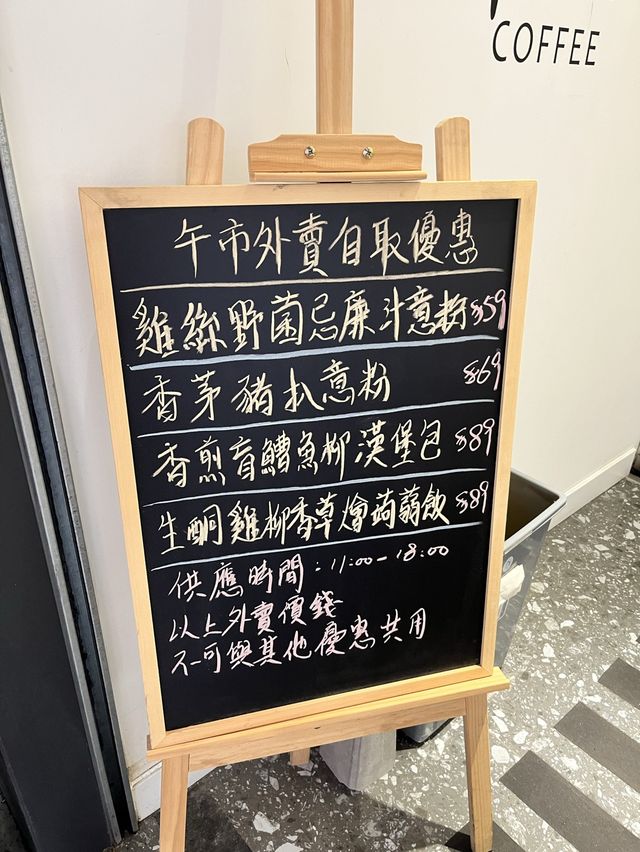 COFFEE
午市外賣自取優惠
雞絲野菌忌廉汁意粉 $59
香茅豬扒意粉 $69
香煎盲鰽魚柳漢堡包 $89
生酮雞柳香草燴蒟蒻飯 $89
供應時間：11:00-18:00
以上外賣價錢
不可與其他優惠共用